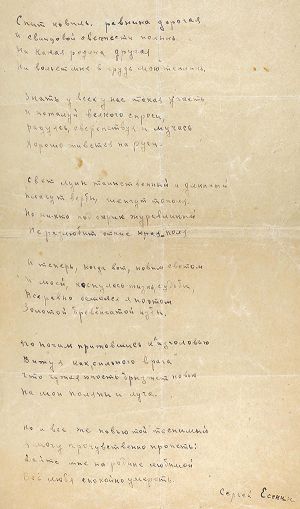 Спит ковыль. равнина дорогая
и свинцовой свежести полынь.
Ни какая родина другая
Не вольет мне в грудь мою теплынь.
Знать у всех у нас такая участь
и пожалуй всякого спроси,
радуясь, свирепствуя и мучась
Хорошо живется на Руси.
Свет луны таинственный и длинный
плачут вербы, шепчут тополя.
Но никто под окрик журавлиный
Не разлюбит отчие поля
И теперь, когда вот, новым светом
И моей, коснулось жизнь судьбы,
Все равно остался я поэтом
Золотой бревенчатой избы.
По ночам прижавшись к изголовью
Вижу я как сильного врага
Что чужая юность брызжет новью
На мои поляны и луга.
Но и все же новью той теснимый
Я могу прочувственно пропеть:
Дайте мне на родине любимой
Всё любя спокойно умереть.
Сергей Есенин